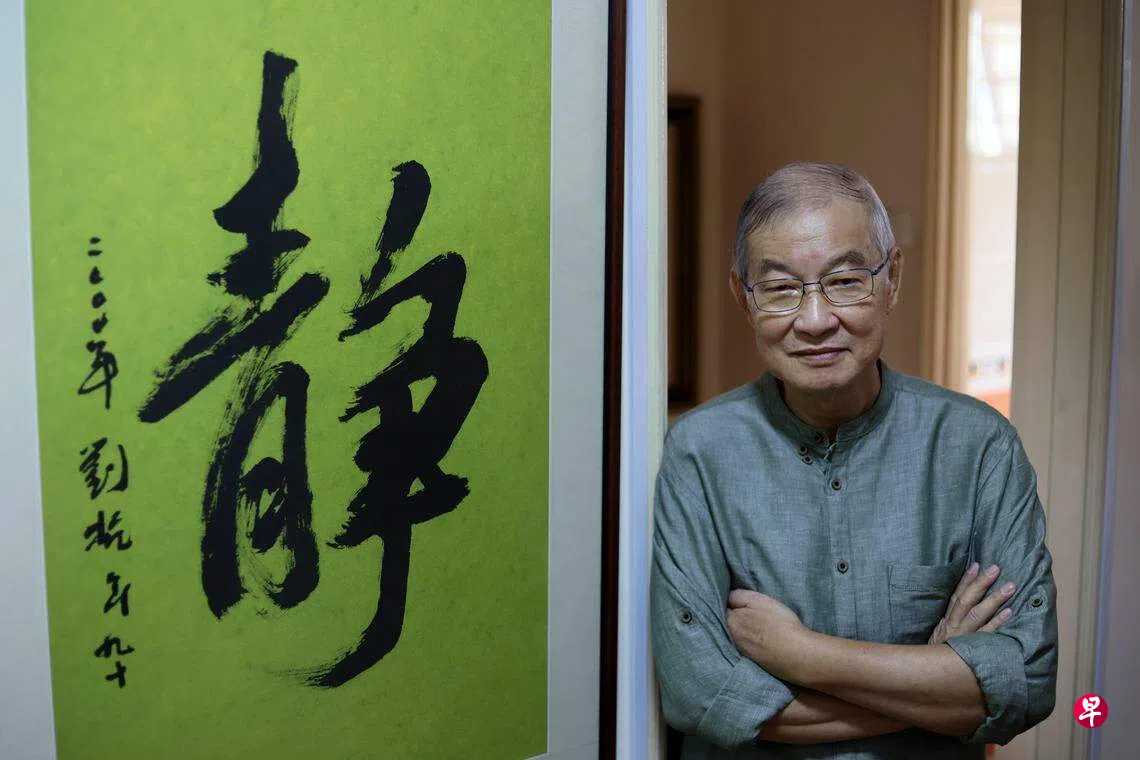 静
二〇〇〇年 劉抗 年九十
早